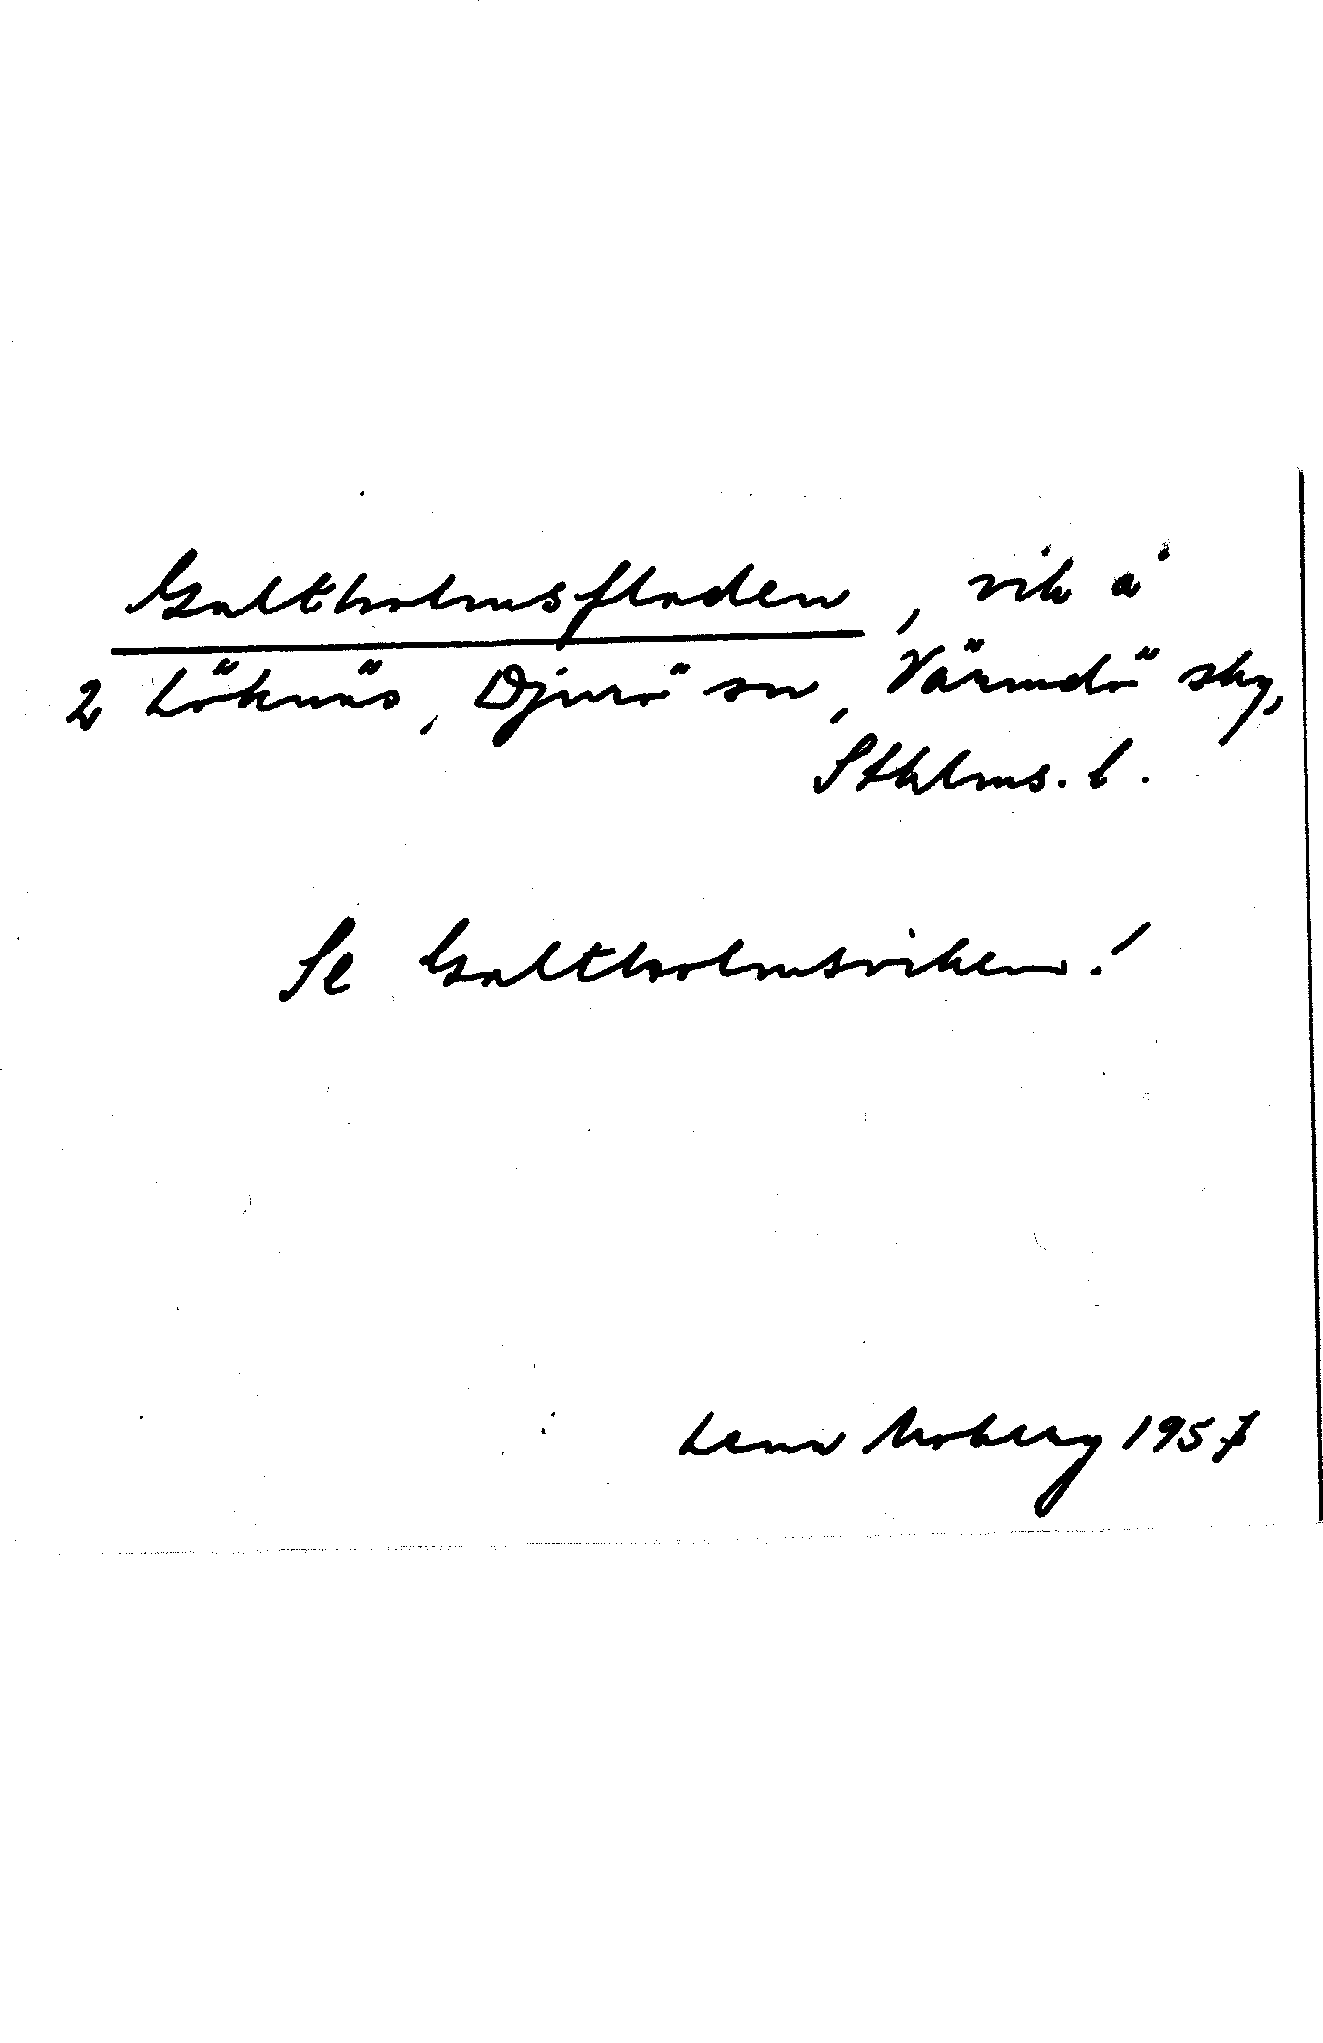 Galtholmsfladen, vik å
2 Löknäs, Djurö sn, Värmdö skg,
Sthlms. l.
Se Galtholmsviken!
Lena Moberg 1957